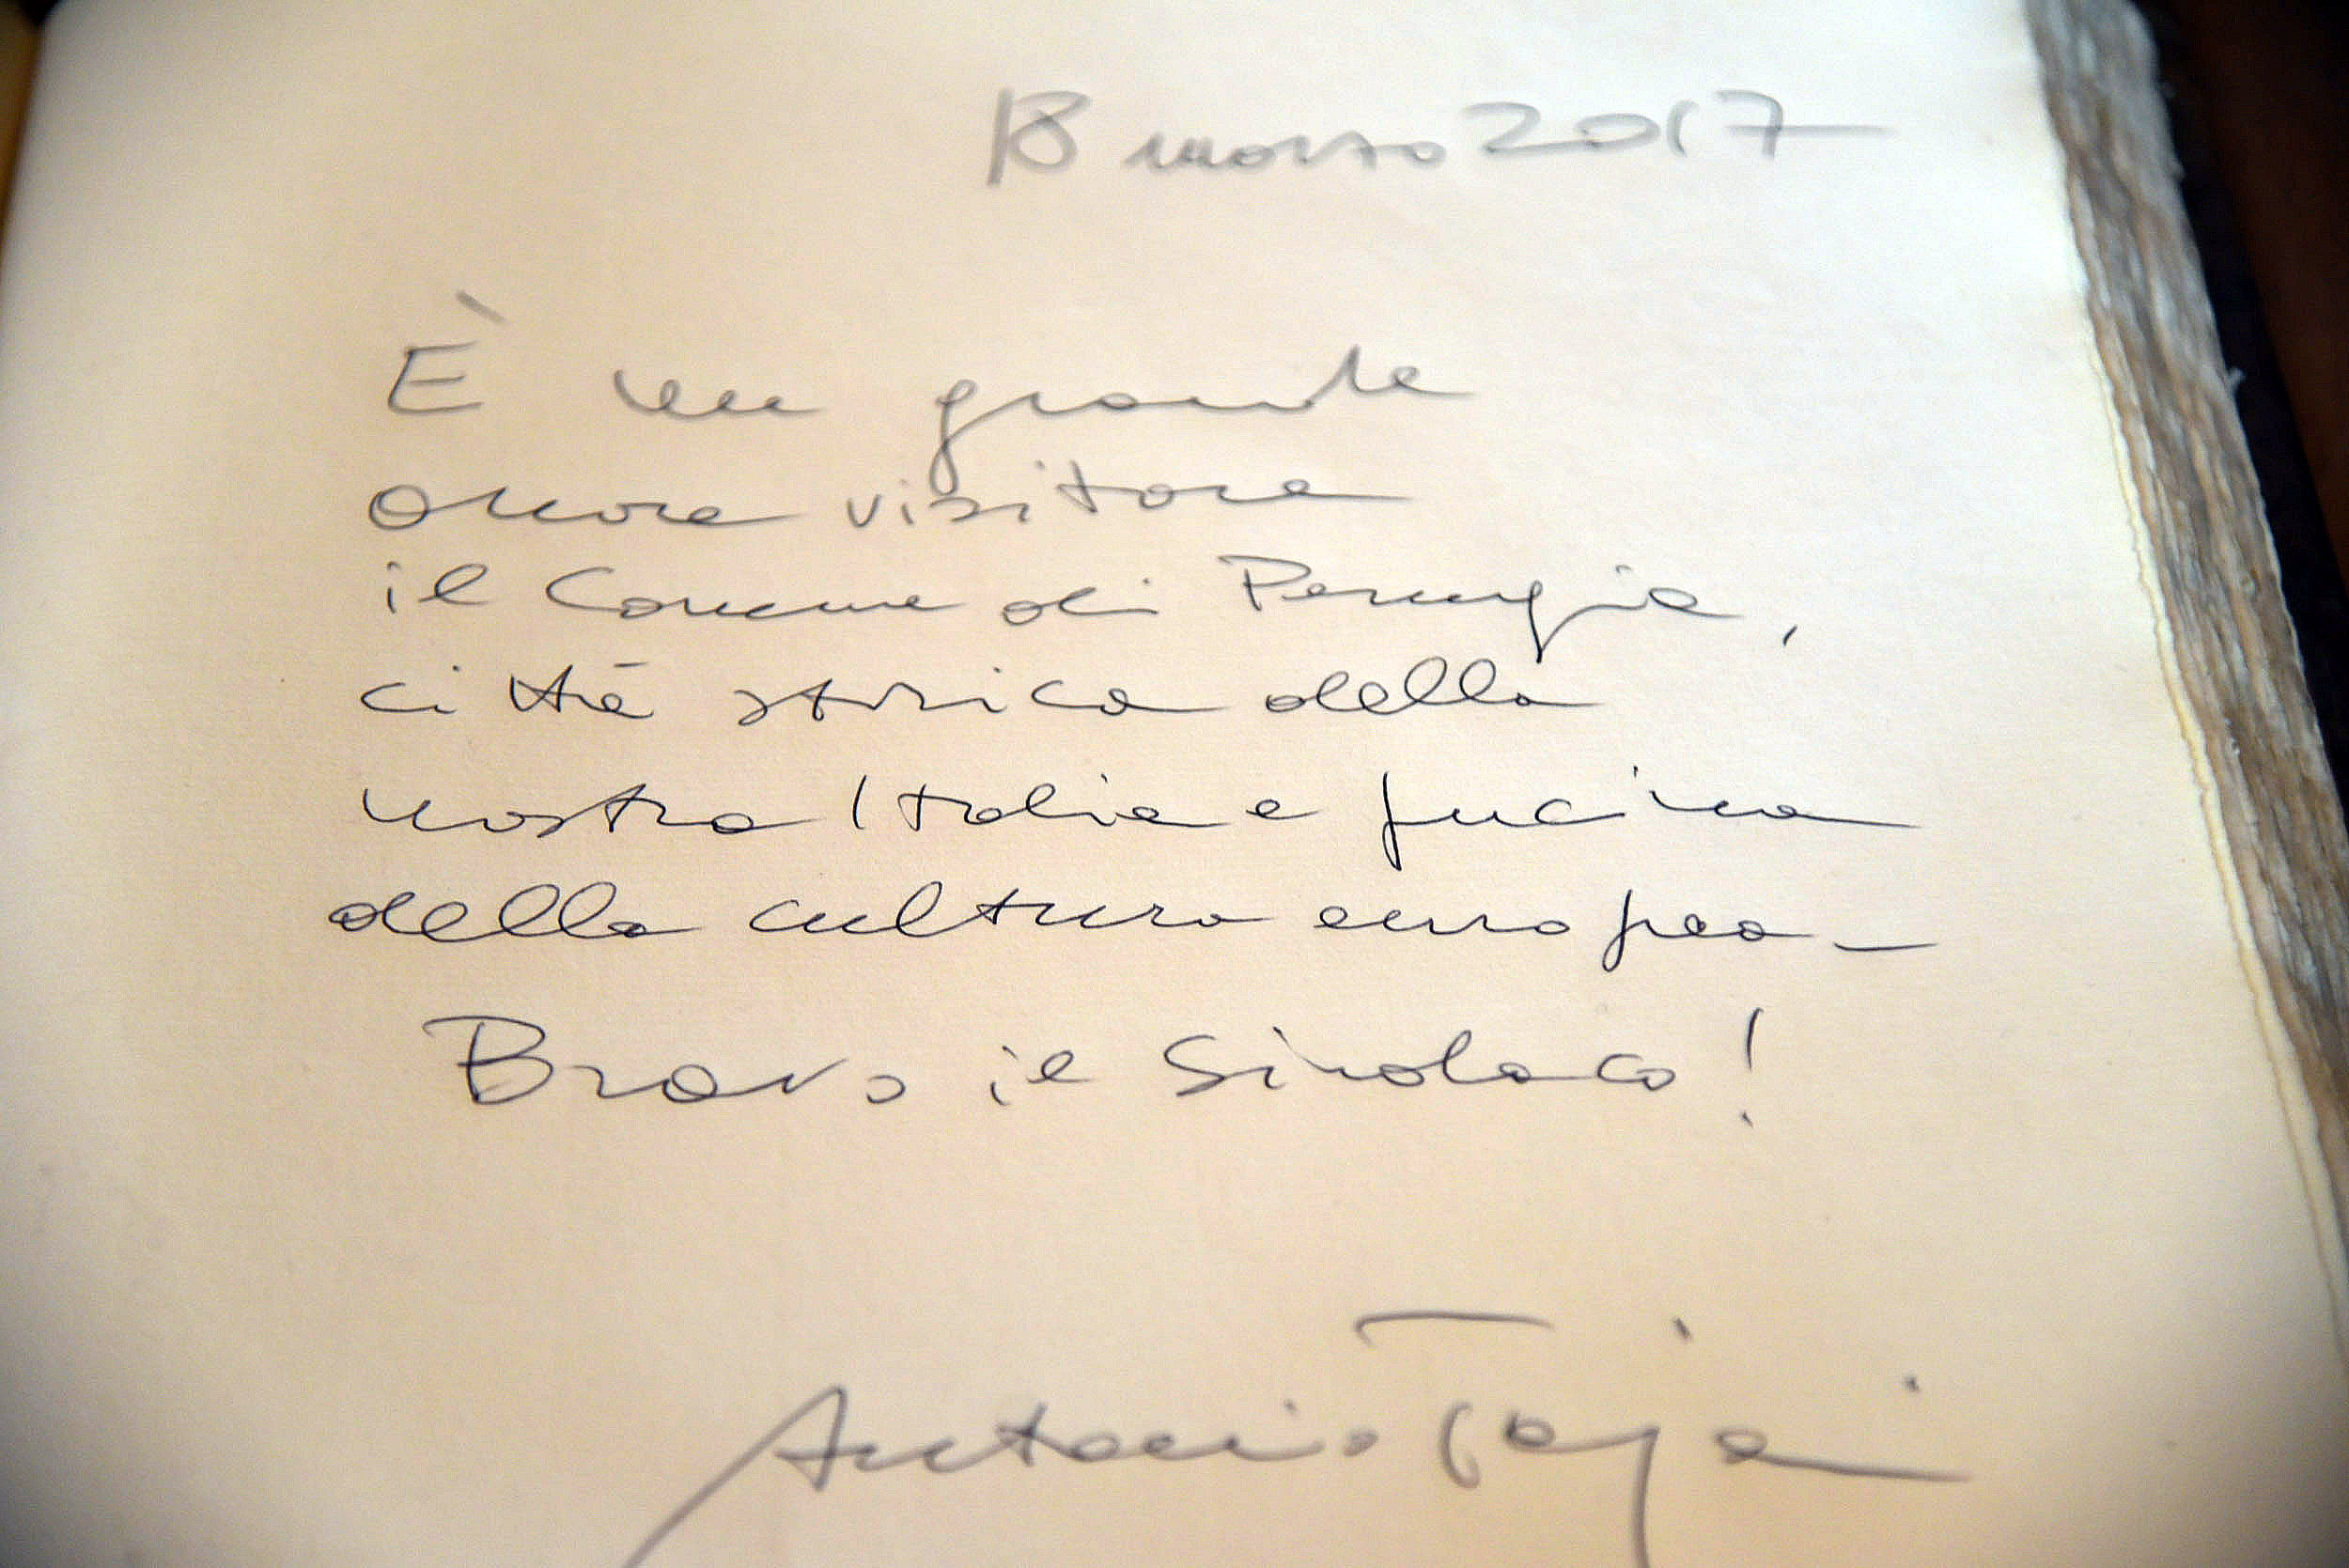 18 marzo 2017
È un grande
onore visitare
il Comune di Perugia,
città storica della
nostra Italia e fucina
della cultura europea -
Bravo il Sindaco!
Antonio Tajani